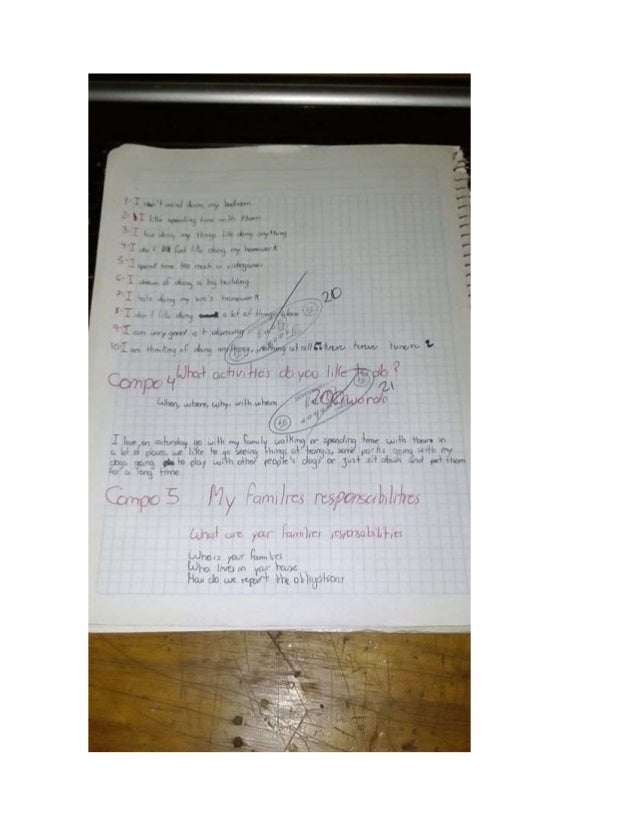 1-I don't mind doing my bedroom
2-I like spending time with them
3-I love doing my things like doing anything
4-I don't feel like doing my homework
5-I spend time too much in videogames
6-I dream of doing a big building
7-I hate doing my homework
8-I don't like doing a lot of things alone
9-I am very good at dancing
10-I am thinking of doing anything, nothing at all
20
Compo 4 What activities do you like to do?
When, where, why, with whom 200 words
21
I love on saturday go with my family walking or spending time with them in
a lot of places, we like to go seeing things at tiangis, some parks going with my
dogs going to play with other people's dogs or just sit down and pet them
for a long time
Compo 5 My familres responsabilitres
What are your familier responsabilities
Who is your families
Who lives in your house
How do we report the obligations